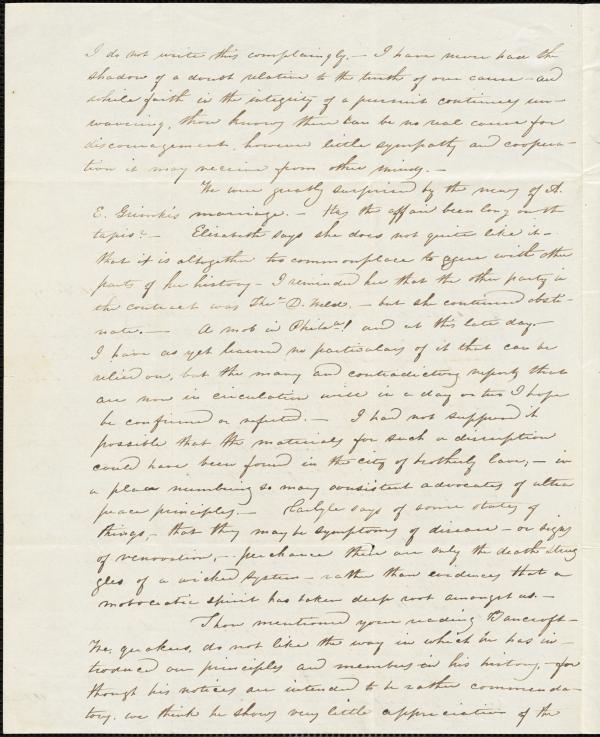 I do not write this complainingly. — I have never had the
shadow of a doubt relative to the truth of our cause — and
while faith in the integrity of a pursuit continues un-
wavering, thou knows there can be no real cause for
discouragement, however little sympathy and coopera-
tion it may receive from other minds. —
We were greatly surprised by the news of A.
E. Grimké's marriage. — Has the affair been long on the
tapis? — Elizabeth says she does not quite like it —
that it is altogether too commonplace to agree with other
parts of her history — I reminded her that the other party in
the contract was Theo. D. Weld. — but she continued obsti-
nate. — A mob in Philada! and at this late day. —
I have as yet learned no particulars of it that can be
relied on, but the many and contradicting reports that
are now in circulation will in a day or two I hope
be confirmed or refuted. — I had not supposed it
possible that the materials for such a disruption
could have been found in the city of brotherly love, — in
a place numbering so many consistent advocates of ultra
peace principles. — Carlyle says of some states of
things, — that they may be symptoms of disease — or signs
of renovation, — perchance these are only the death strug
gles of a wicked system — rather than evidences that a
mobocratic spirit has taken deep root amongst us. —
Thou mentioned your reading Bancroft —
We, quakers, do not like the way in which he has in-
troduced our principles and members in his history, — for
though his notices are intended to be rather commenda-
tory, we think he shows very little appreciation of the